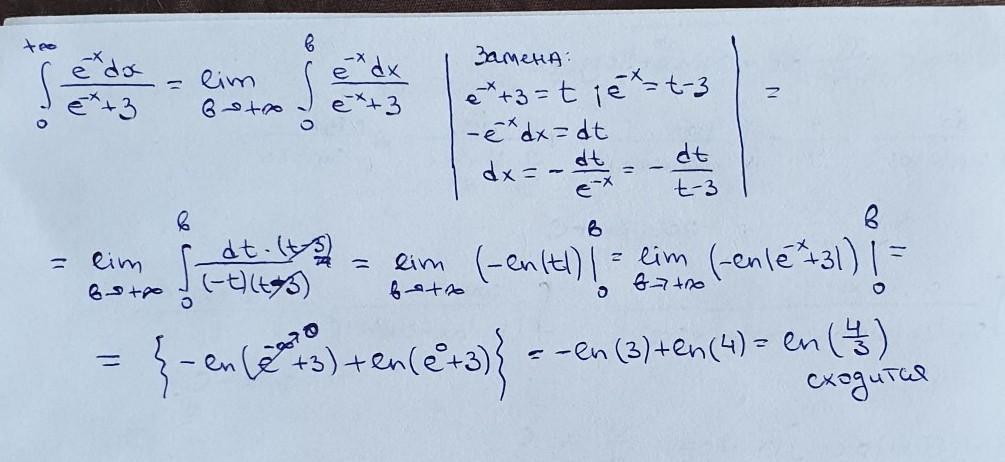 ∫₀^{+∞} e^{-x}dx/(e^{-x}+3) = lim_{в→+∞} ∫₀^в e^{-x}dx/(e^{-x}+3) | Замена: | =
e^{-x}+3 = t ; e^{-x} = t-3
-e^{-x}dx = dt
dx = - dt/e^{-x} = - dt/(t-3)
= lim_{в→+∞} ∫₀^в dt·(t-3)/((-t)(t-3)) = lim_{в→+∞} (-ln|t|)|₀^в = lim_{в→+∞} (-ln|e^{-x}+3|)|₀^в =
= {-ln(e^{-∞}→0 +3) + ln(e⁰+3)} = -ln(3)+ln(4) = ln(4/3)
сходится